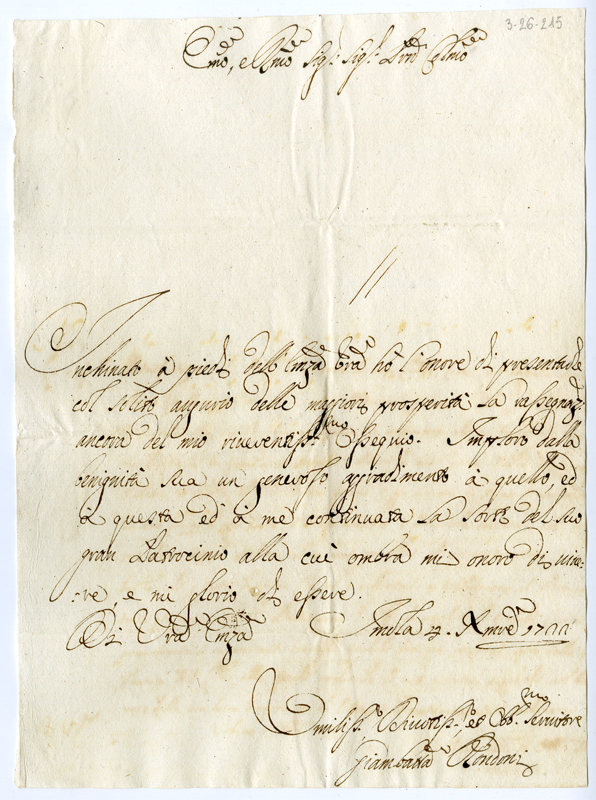 3-26-215
Em̃o, e Rm̃o Sig.r Sig.r Pron̄ Colm̃o
Inchinato à piedi dell'Emza Vra hò l'onore di presentarle
col solito augurio delle magiori prosperità la rassegnaz.
ancora del mio riverentiss.mo ossequio. Imploro dalla
benignità sua un generoso gradimento à quello, ed
à questa ed à me continuata la sorte del suo
gran Patrocinio alla cui ombra mi onoro di vive-
-re, e mi glorio di essere.
Di Vra Emza Imola Xmbre
Umiliss.o Divotiss.o, ed Obb.mo Servitore
Giambatta Rondoni